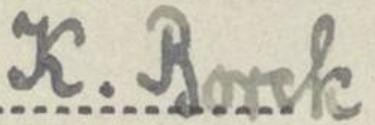 K. Borck